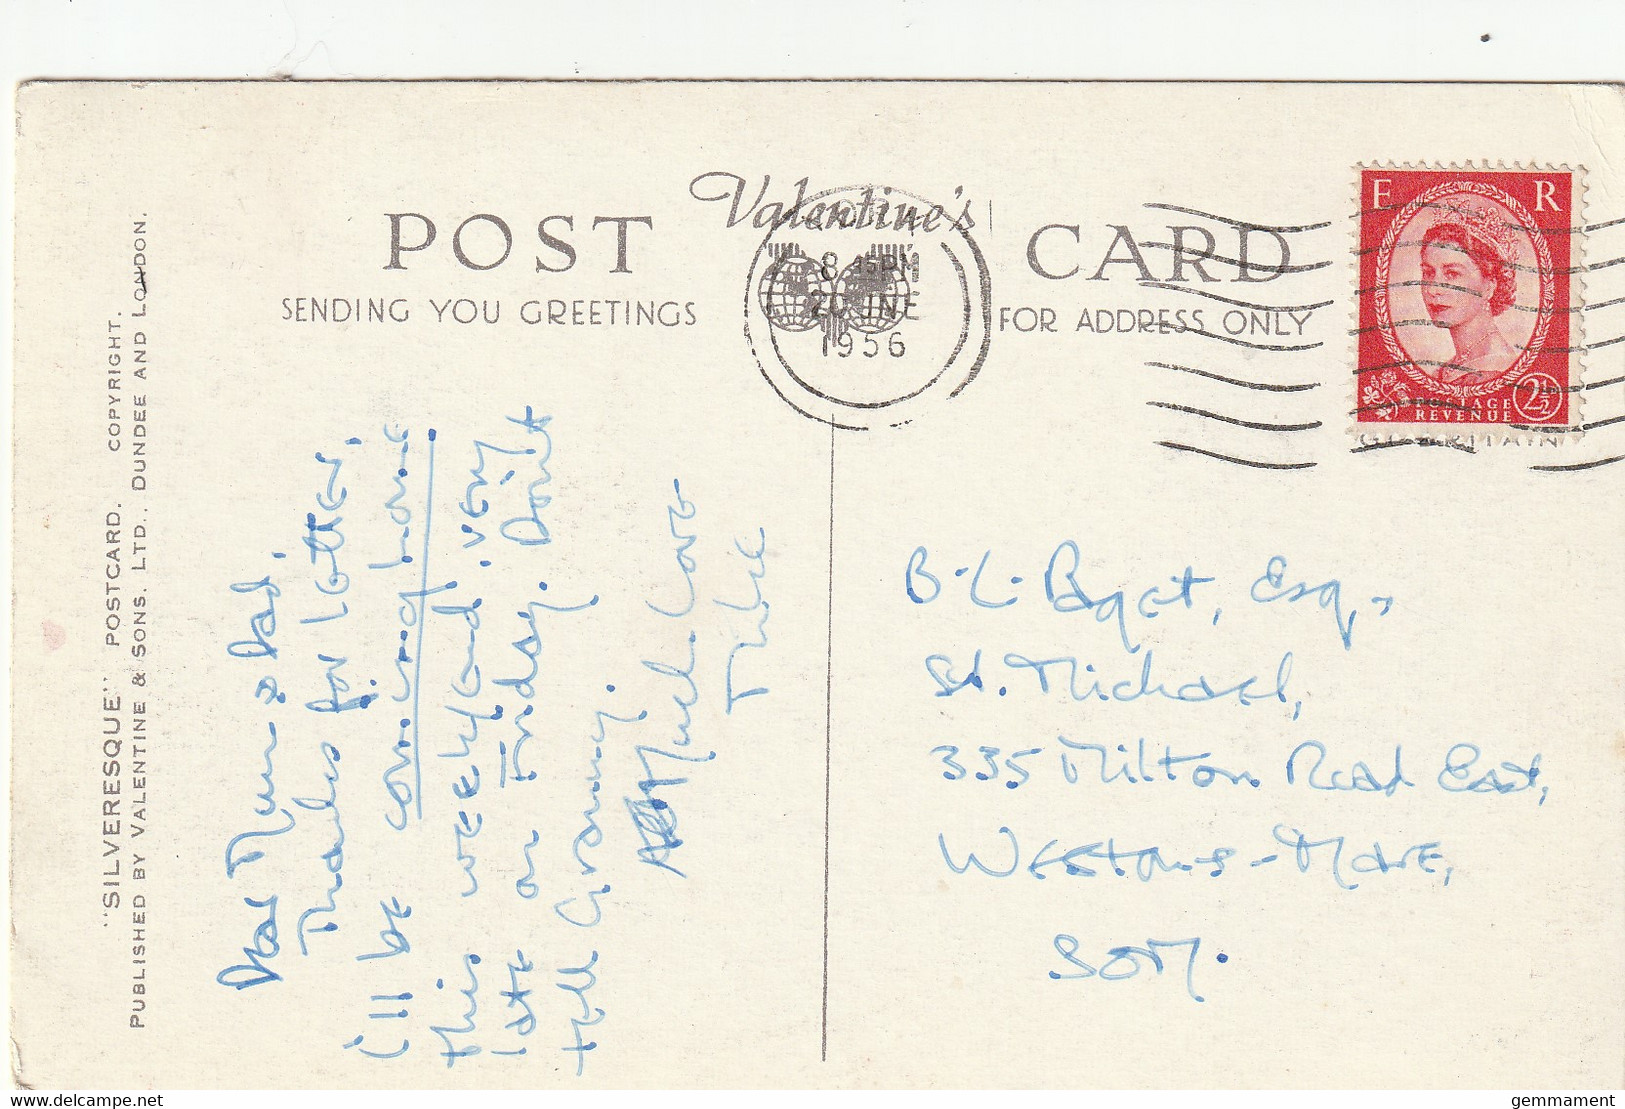 Valentine's
POST CARD
SENDING YOU GREETINGS
FOR ADDRESS ONLY
8 15 PM
20 JNE
1956
E R
POSTAGE
REVENUE
2½
"SILVERESQUE" POSTCARD. COPYRIGHT.
PUBLISHED BY VALENTINE & SONS. LTD., DUNDEE AND LONDON.
Dear Mum & Dad,
Thanks for letter.
I'll be coming home
this weekend. very
late on Friday. Don't
tell Granny.
Much Love
Mike
B. L. Paget, Esq.,
St. Michael,
335 Milton Road East,
Weston-s-Mare,
SOM.
gemmament